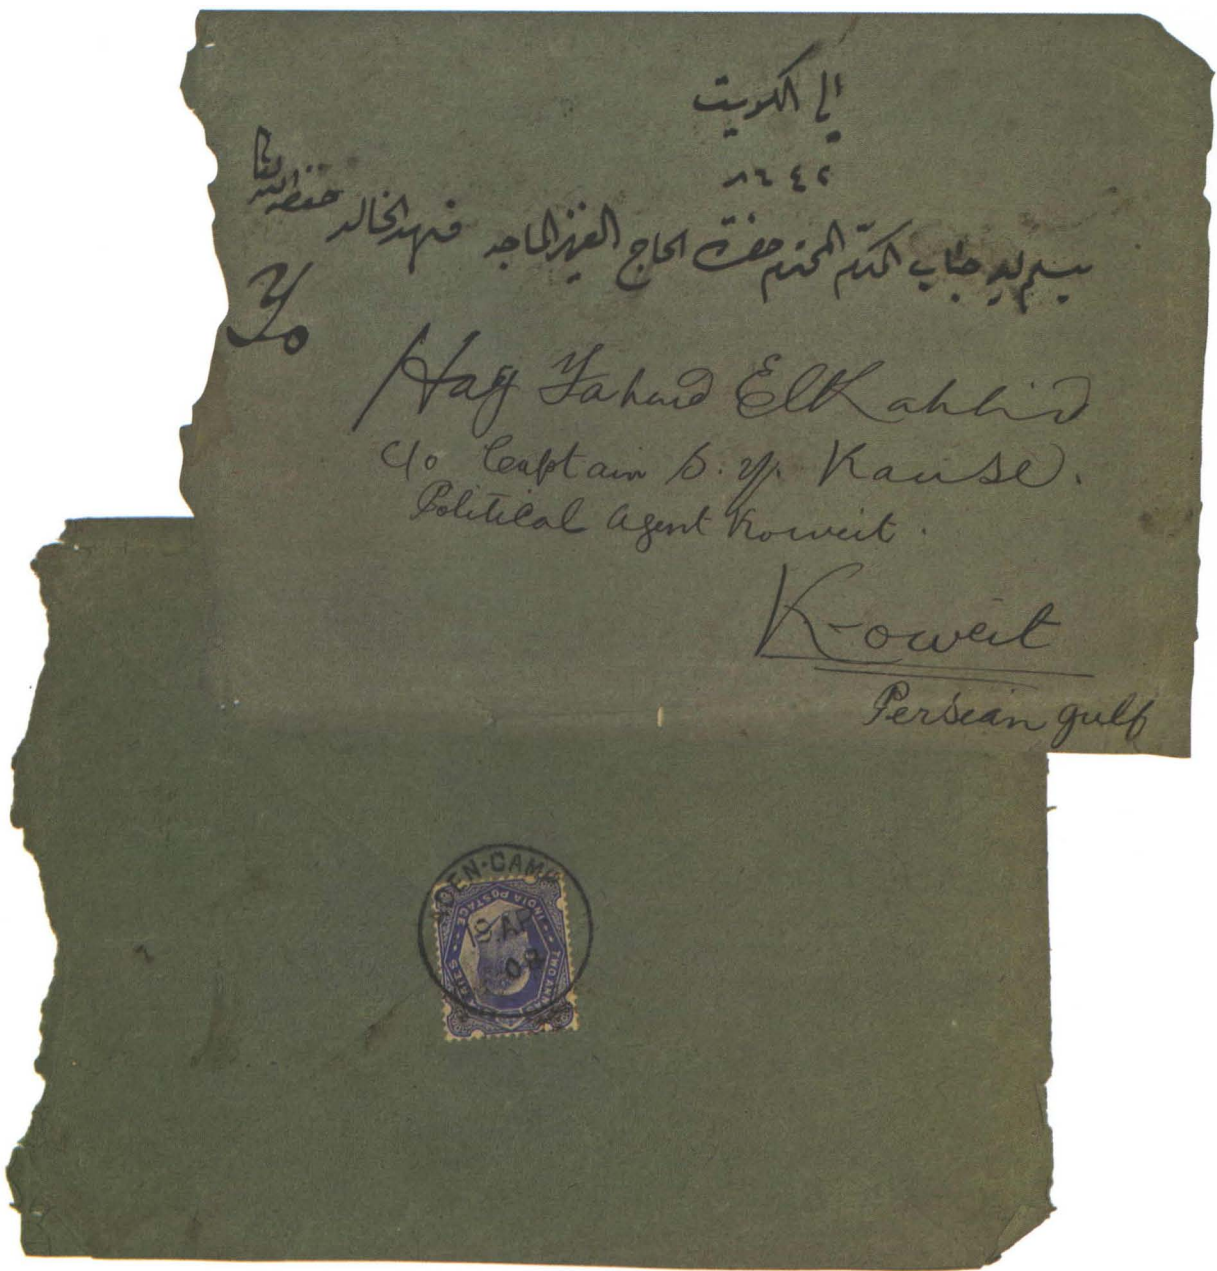 الى الكويت
٨٦٤٢
يسلم بيد جناب المكرم المحترم حضرت الحاج العزيز الماجد فهد الخالد حفظه الله تعالى
To
Hag Fahud El Kahlid
C/o Captain S. G. Kause.
Political Agent Koweit.
Koweit
Persian gulf
ADEN-CAMP
INDIA POSTAGE
AP
09
TWO ANNAS